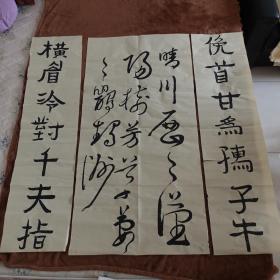 俛首甘為孺子牛
晴川歷〻漢
陽樹芳草萋
〻鸚鵡洲
橫眉冷對千夫指